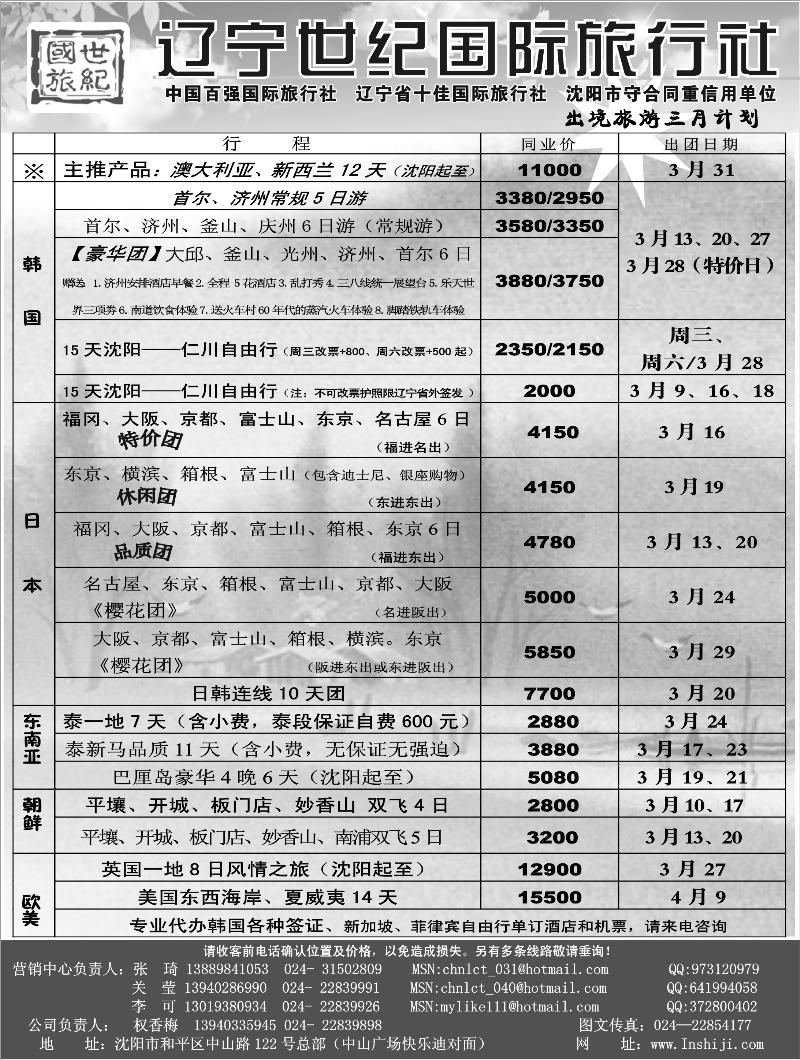 國世旅紀
辽宁世纪国际旅行社
中国百强国际旅行社 辽宁省十佳国际旅行社 沈阳市守合同重信用单位
出境旅游三月计划
行 程 同业价 出团日期
※ 主推产品：澳大利亚、新西兰 12 天（沈阳起至） 11000 3 月 31
韩国
首尔、济州常规 5 日游 3380/2950
首尔、济州、釜山、庆州 6 日游（常规游） 3580/3350
3 月 13、20、27
3 月 28（特价日）
【豪华团】大邱、釜山、光州、济州、首尔 6 日 3880/3750
赠送 1. 济州安排酒店早餐 2. 全程 5 花酒店 3. 乱打秀 4. 三八线统一展望台 5. 乐天世
界三项券 6. 南道饮食体验 7. 送火车村 60 年代的蒸汽火车体验 8. 脚踏铁轨车体验
15 天沈阳——仁川自由行（周三改票+800、周六改票+500 起） 2350/2150 周三、
周六/3 月 28
15 天沈阳——仁川自由行（注：不可改票护照限辽宁省外签发 ） 2000 3 月 9、16、18
日本
福冈、大阪、京都、富士山、东京、名古屋 6 日 4150 3 月 16
特价团 （福进名出）
东京、横滨、箱根、富士山（包含迪士尼、银座购物） 4150 3 月 19
休闲团 （东进东出）
福冈、大阪、京都、富士山、箱根、东京 6 日 4780 3 月 13、20
品质团 （福进东出）
名古屋、东京、箱根、富士山、京都、大阪 5000 3 月 24
《樱花团》 （名进阪出）
大阪、京都、富士山、箱根、横滨。东京 5850 3 月 29
《樱花团》 （阪进东出或东进阪出）
日韩连线 10 天团 7700 3 月 20
东南亚
泰一地 7 天（含小费，泰段保证自费 600 元） 2880 3 月 24
泰新马品质 11 天（含小费，无保证无强迫） 3880 3 月 17、23
巴厘岛豪华 4 晚 6 天（沈阳起至） 5080 3 月 19、21
朝鲜
平壤、开城、板门店、妙香山 双飞 4 日 2800 3 月 10、17
平壤、开城、板门店、妙香山、南浦双飞 5 日 3200 3 月 13、20
欧美
英国一地 8 日风情之旅（沈阳起至） 12900 3 月 27
美国东西海岸、夏威夷 14 天 15500 4 月 9
专业代办韩国各种签证、新加坡、菲律宾自由行单订酒店和机票，请来电咨询
请收客前电话确认位置及价格，以免造成损失。另有多条线路敬请垂询！
营销中心负责人：张 琦 13889841053 024-31502809 MSN:chnlct_031@hotmail.com QQ:973120979
关 莹 13940286990 024-22839991 MSN:chnlct_040@hotmail.com QQ:641994058
李 可 13019380934 024-22839926 MSN:mylike111@hotmail.com QQ:372800402
公司负责人： 权香梅 13940335945 024-22839898 图文传真：024—22854177
地 址：沈阳市和平区中山路 122 号总部（中山广场快乐迪对面） 网 址：www.lnshiji.com